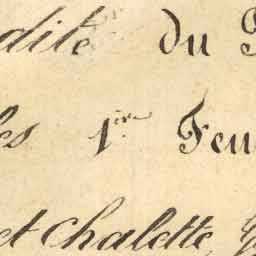 dite du
les 1ère Feu
et Chalette,